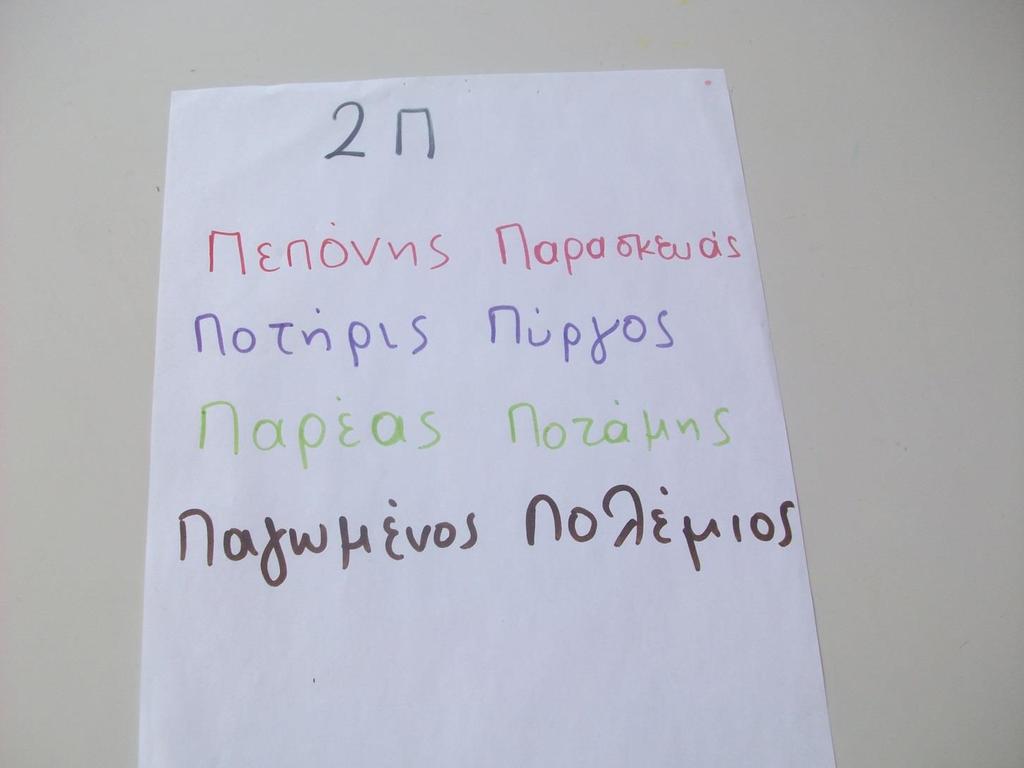 2 Π
Πεπόνης Παρασκευάς
Ποτήρις Πύργος
Παρέας Ποτάμης
Παγωμένος Πολέμιος